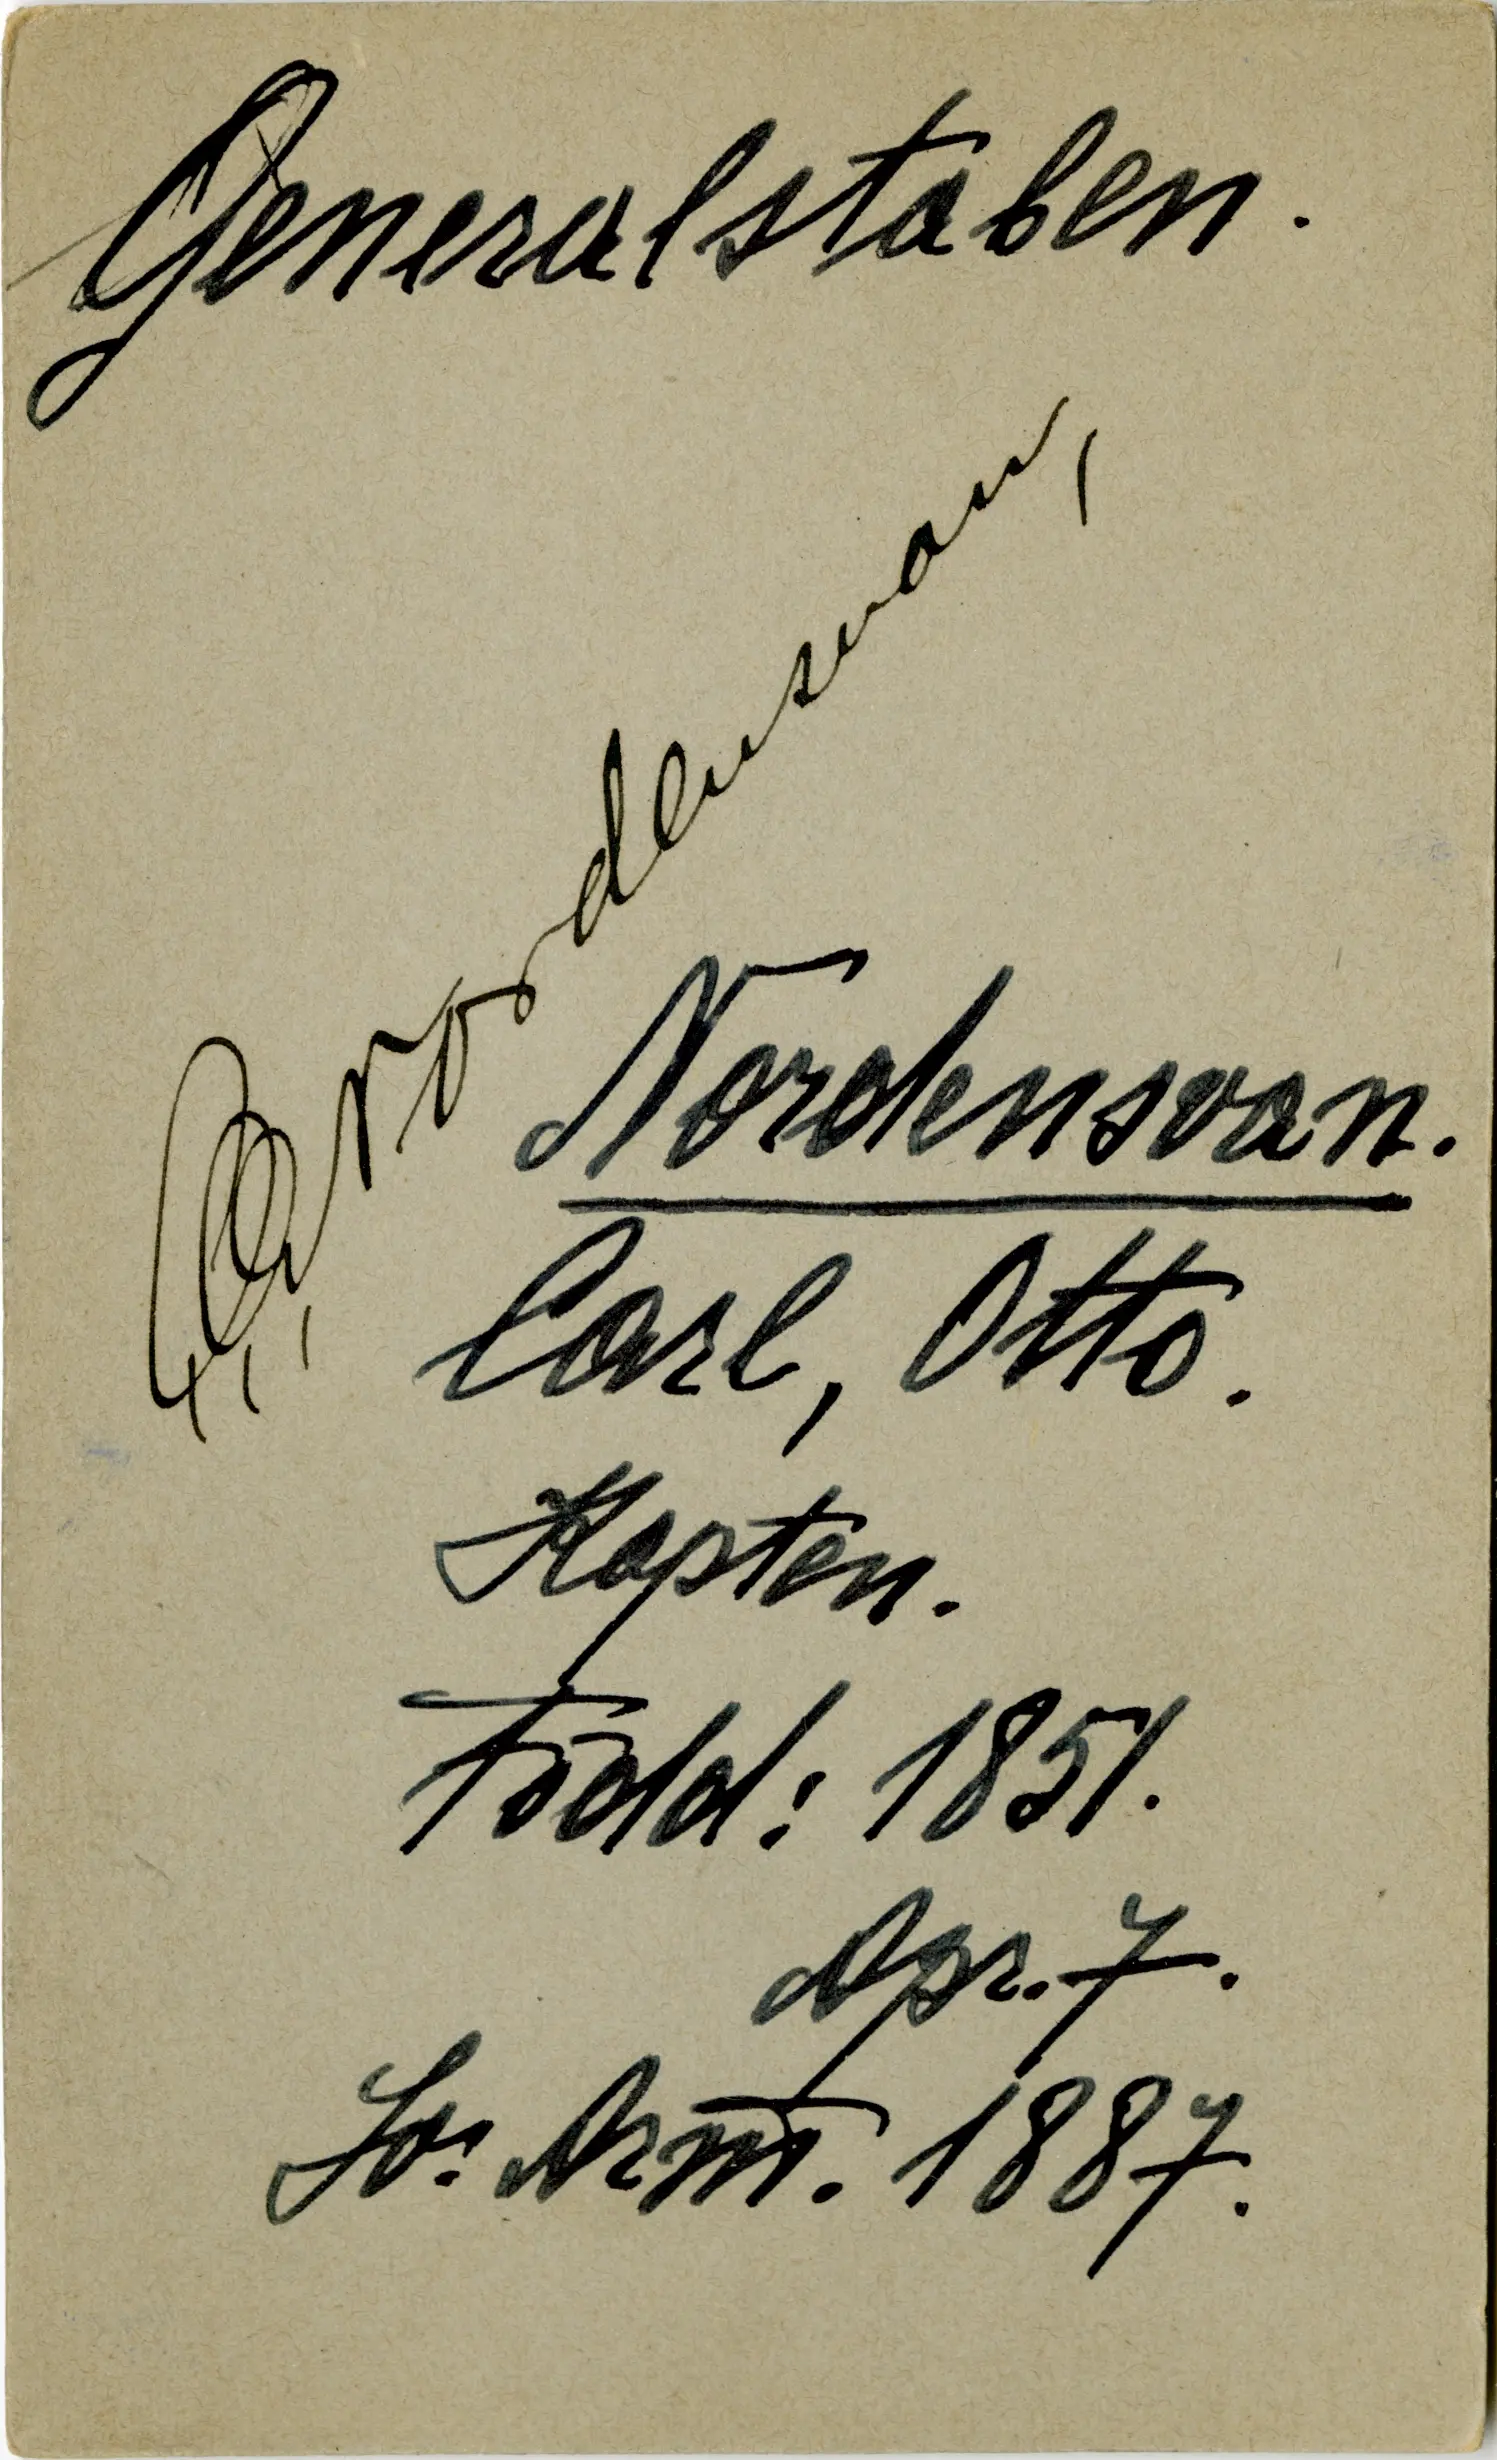 Generalstaben.
C. O. Nordensvan,
Nordensvan.
Carl, Otto.
Kapten.
Född: 1851.
Apr. 7.
Lo: Armn. 1887.